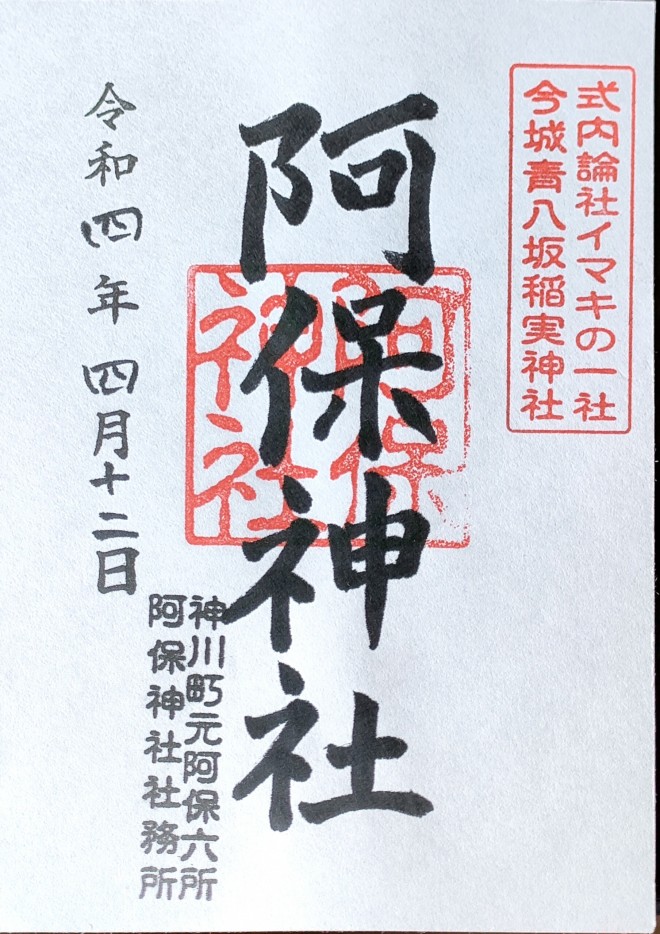 式内論社イマキの一社
今城青八坂稲実神社
阿保神社
阿保
神社
神川町元阿保六所
阿保神社社務所
令和四年 四月十二日